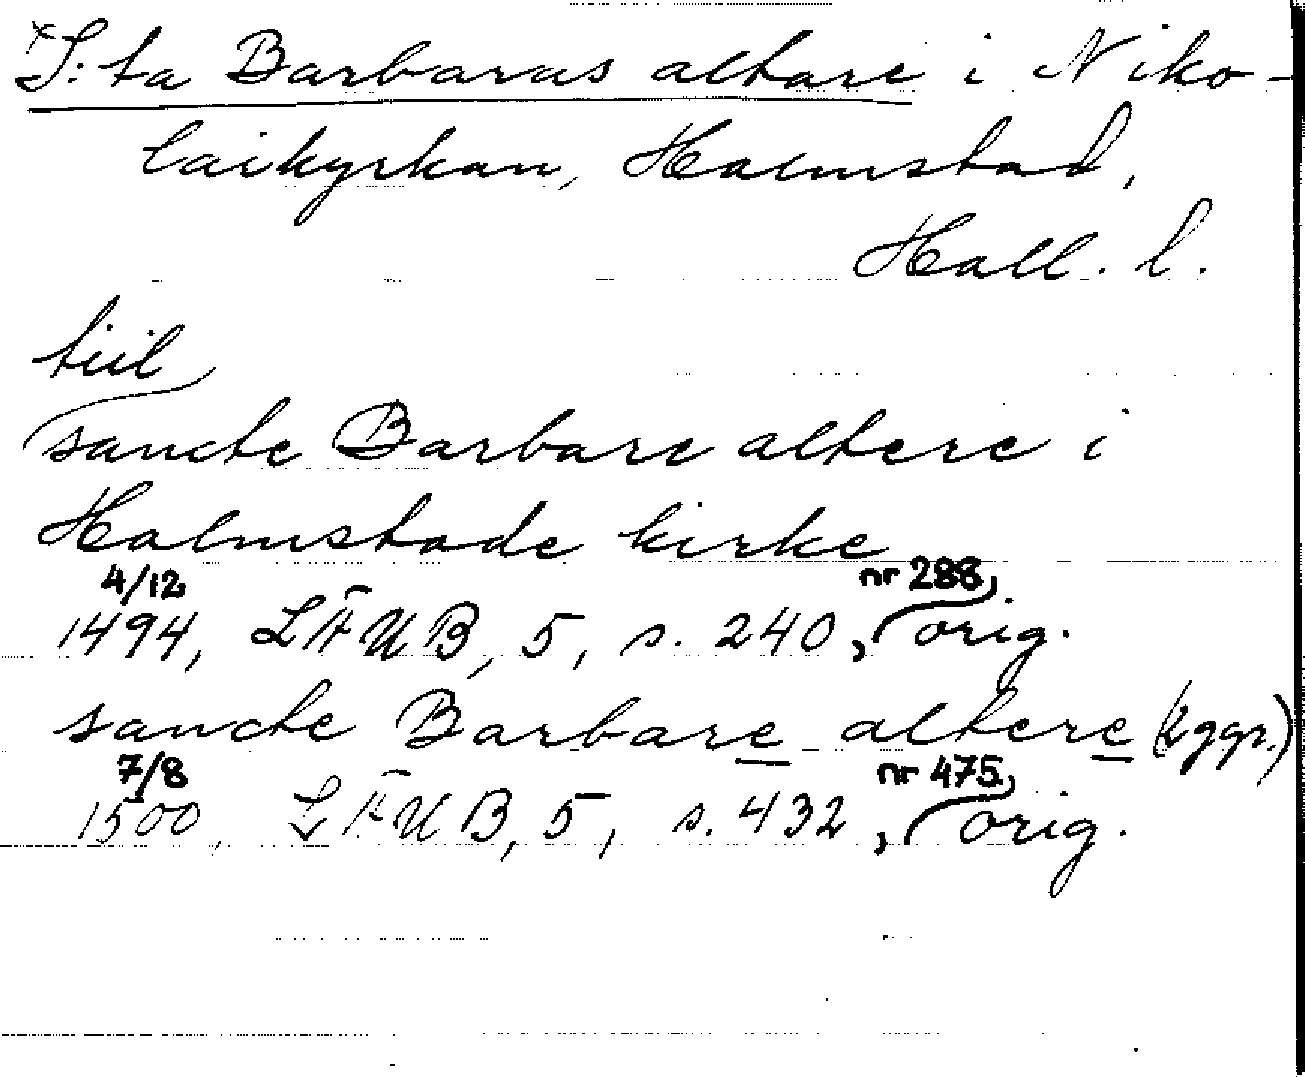 S:ta Barbaras altare i Niko-
laikyrkan, Halmstad,
Hall. l.
tiil
sancte Barbare altere i
Halmstade kirke
4/12 nr 288,
1494, LÄUB, 5, s. 240, orig.
sancte Barbare altere (2 ggr.)
7/8 nr 475,
1500, LÄUB, 5, s. 432, orig.